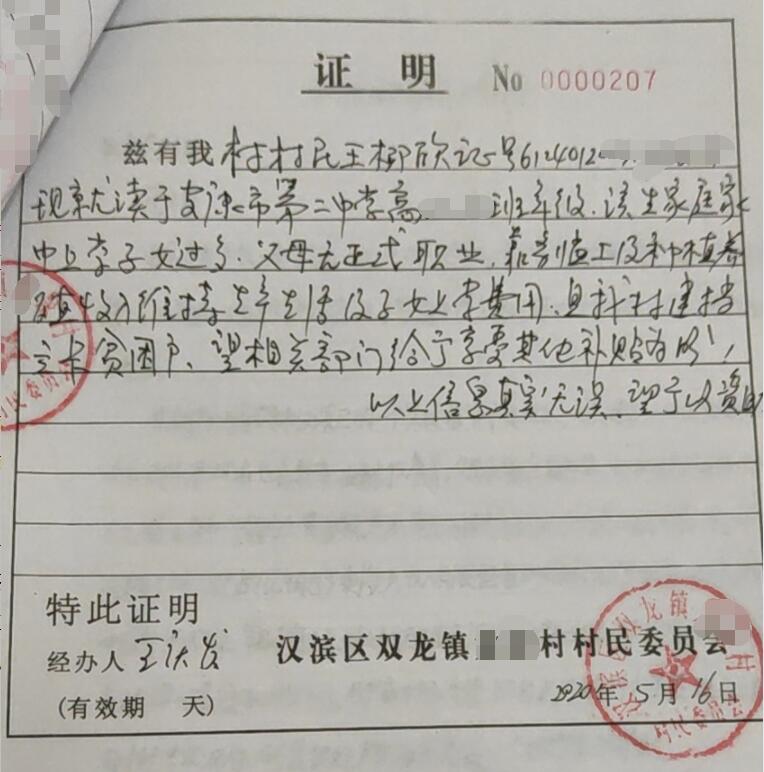 证 明 No 0000207
兹有我村村民王柳欣证号6124012
现就读于安康市第二中学高 班年级.该生家庭家
中上学子女过多.父母无正式职业,靠务工及种植养
殖收入维持生产生活及子女上学费用.且我村建档
立卡贫困户、望相关部门给予享受其他补贴为盼,
以上信息真实无误、望予以资助
特此证明
经办人
汉滨区双龙镇 村村民委员会
(有效期 天)
2020年5月16日
双龙镇
村民委员会
村民委员会